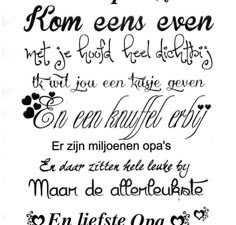 Kom eens even
met je hoofd heel dichtbij
Ik wil jou een kusje geven
En een knuffel erbij
Er zijn miljoenen opa's
En daar zitten hele leuke by
Maar de allerleukste
En liefste Opa